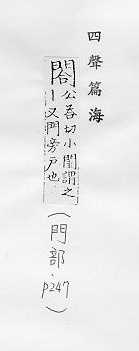 四聲篇海
閤公荅切小閨謂之
丨又門旁戶也
(門部.p247)